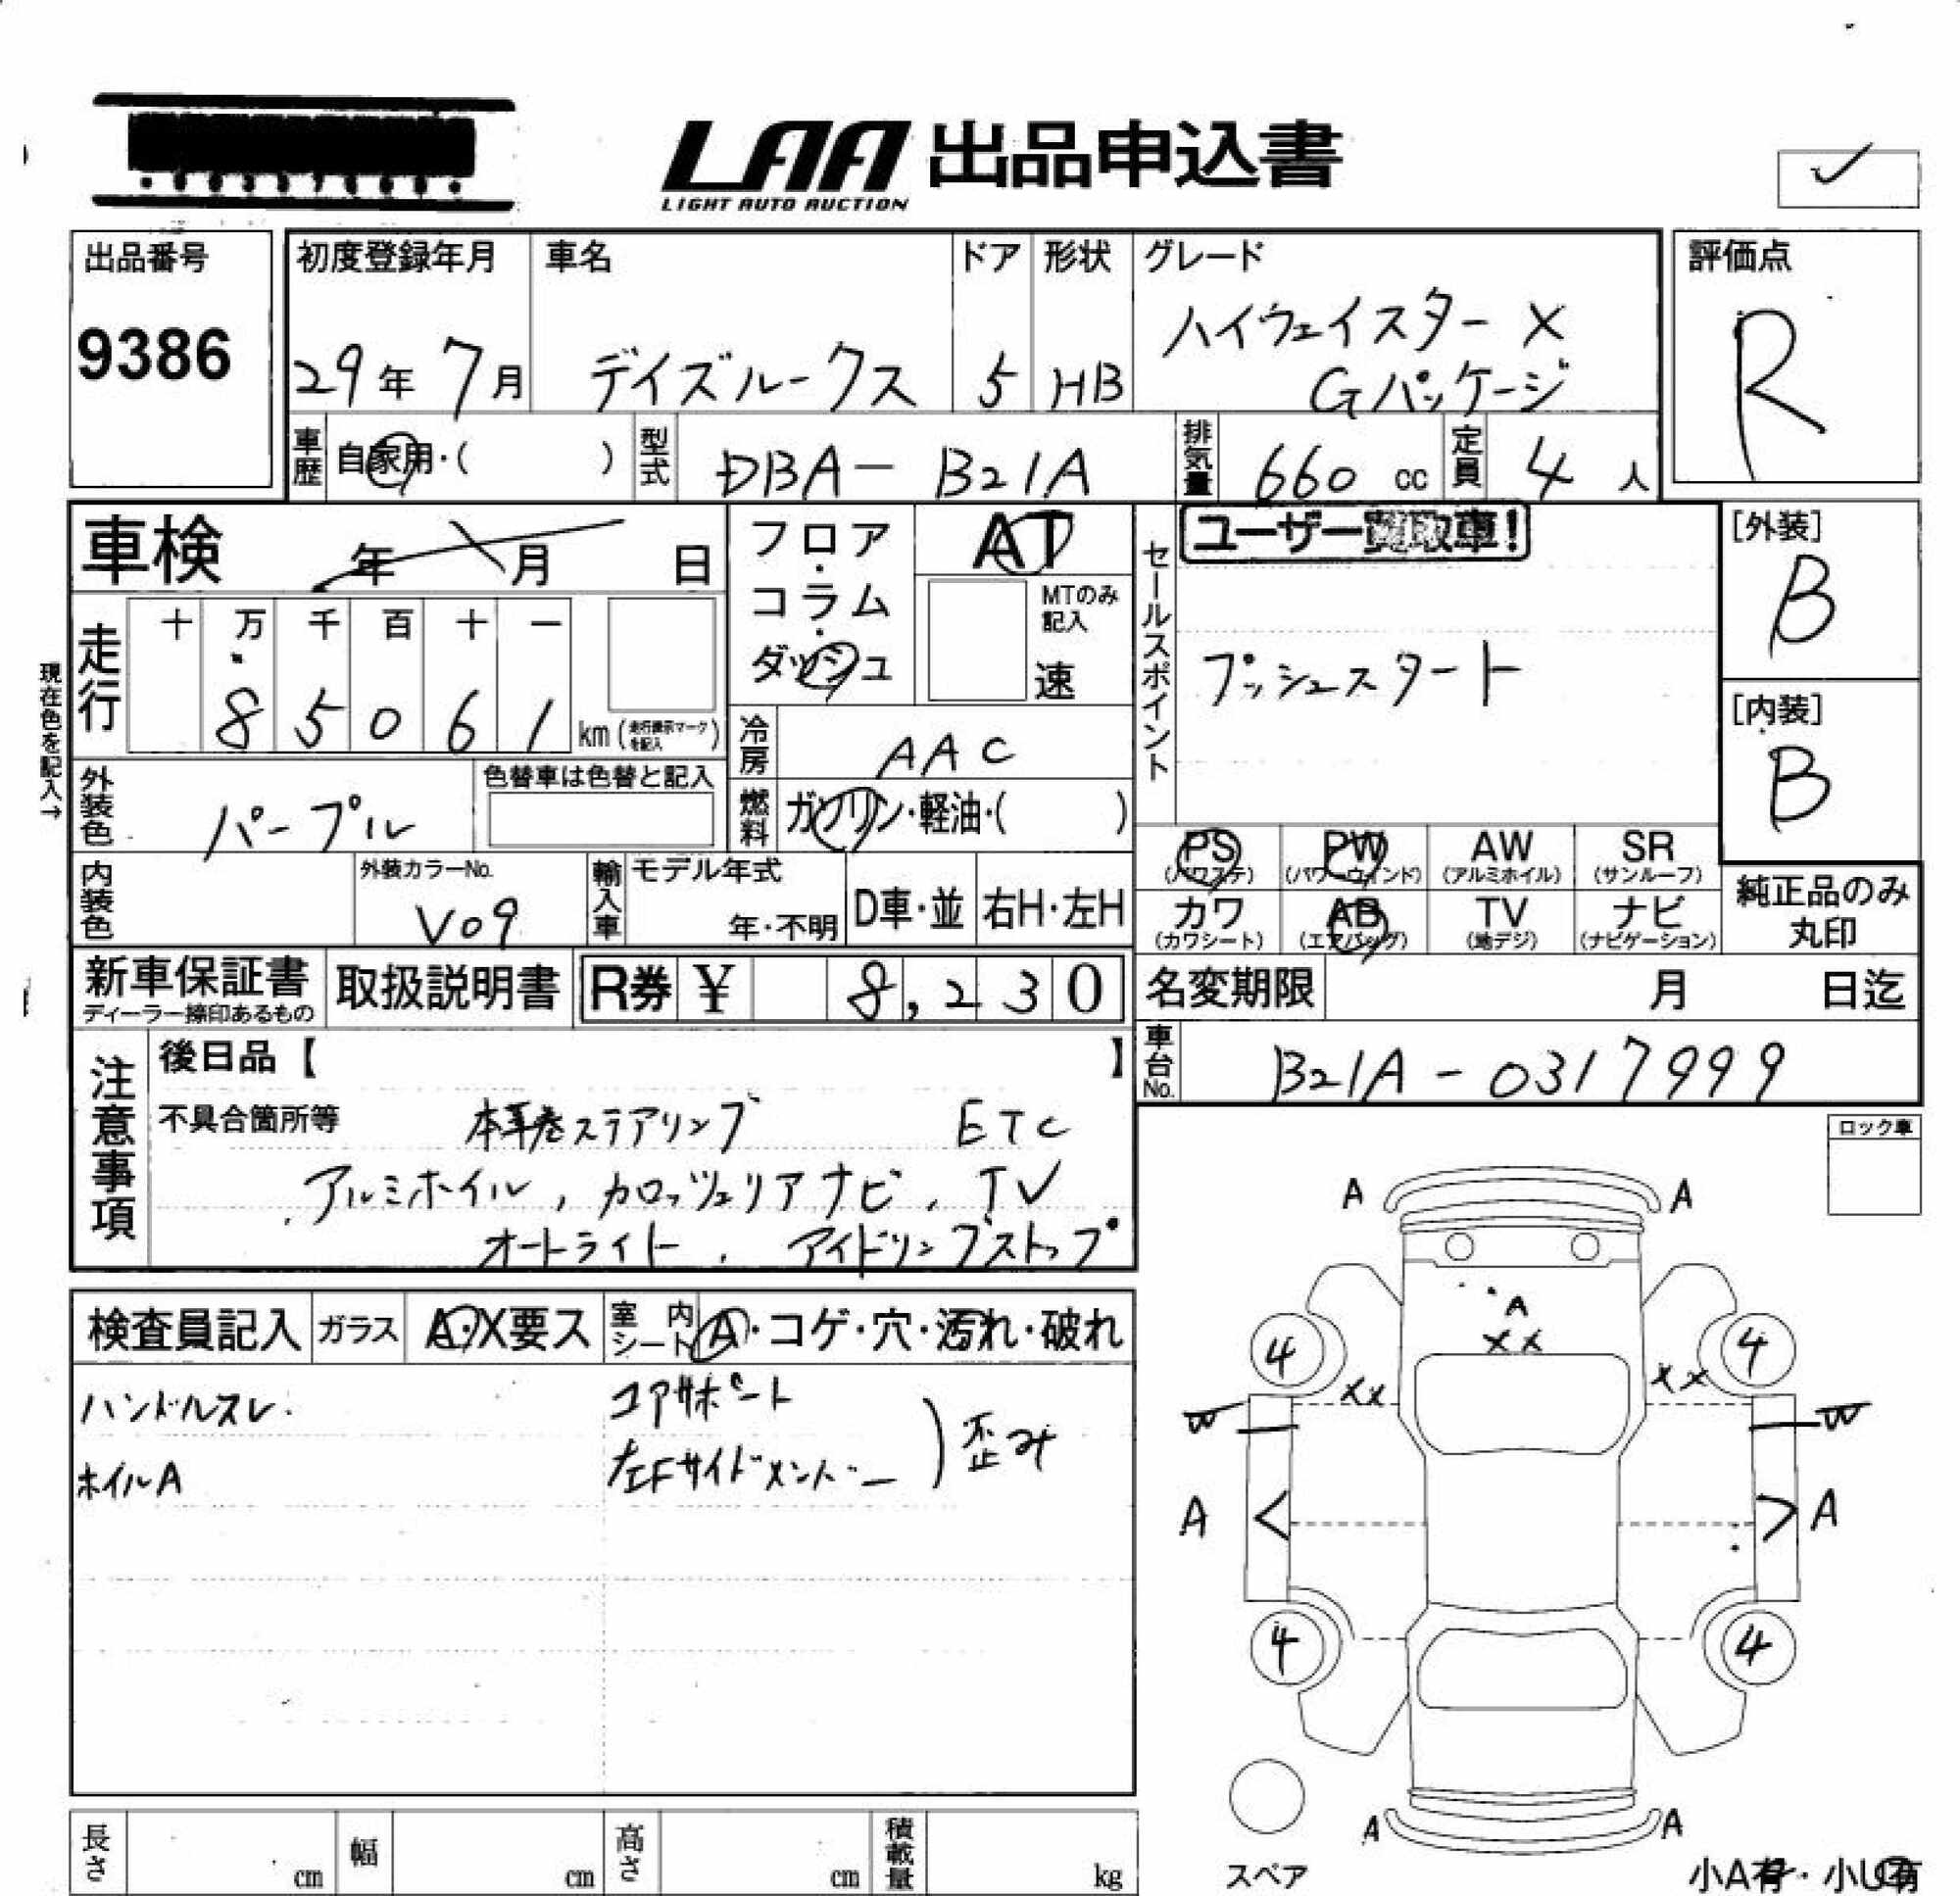 LAA 出品申込書
LIGHT AUTO AUCTION
出品番号
9386
初度登録年月
29年 7月
車名
デイズルークス
ドア
5
形状
HB
グレード
ハイウェイスター X
Gパッケージ
評価点
R
車歴
自家用・( )
型式
DBA－B21A
排気量
660 cc
定員
4 人
車検 年 月 日
フロア・コラム・ダッシュ
AT
MTのみ記入
速
セールスポイント
ユーザー買取車!
プッシュスタート
[外装]
B
[内装]
B
現在色を記入→
走行
十 万 千 百 十 一
8 5 0 6 1
km (走行表示マークを記入)
冷房
AAC
外装色
パープル
色替車は色替と記入
燃料
ガソリン・軽油・( )
内装色
外装カラーNo.
V09
輸入車
モデル年式
年・不明
D車・並
右H・左H
PS
(パワステ)
PW
(パワーウインド)
AW
(アルミホイル)
SR
(サンルーフ)
カワ
(カワシート)
AB
(エアバッグ)
TV
(地デジ)
ナビ
(ナビゲーション)
純正品のみ
丸印
新車保証書
ディーラー捺印あるもの
取扱説明書
R券 ¥ 8,230
名変期限 月 日迄
車台No.
B21A-0317999
注意事項
後日品【 】
不具合箇所等
本革巻ステアリング ETC
アルミホイル, カロッツェリアナビ, TV
オートライト, アイドリングストップ
ロック車
検査員記入
ガラス
A・X要ス
室内シート
A・コゲ・穴・汚れ・破れ
ハンドルスレ
ホイルA
コアサポート
左Fサイドメンバー
歪み
A A
A
XX
4 4
XX XX
W W
A < > A
4 4
A A
スペア
小A有・小U有
長さ cm
幅 cm
高さ cm
積載量 kg